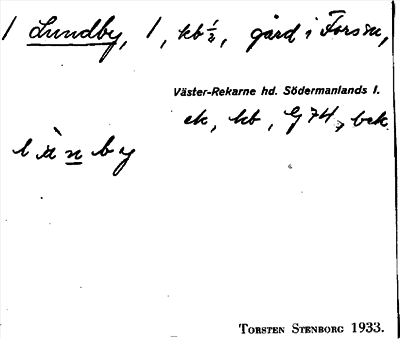 1 Lundby, 1, kb ½, gård i Fors sn,
Väster-Rekarne hd. Södermanlands l.
ek, kb, G 74, bek.
lànby
TORSTEN STENBORG 1933.